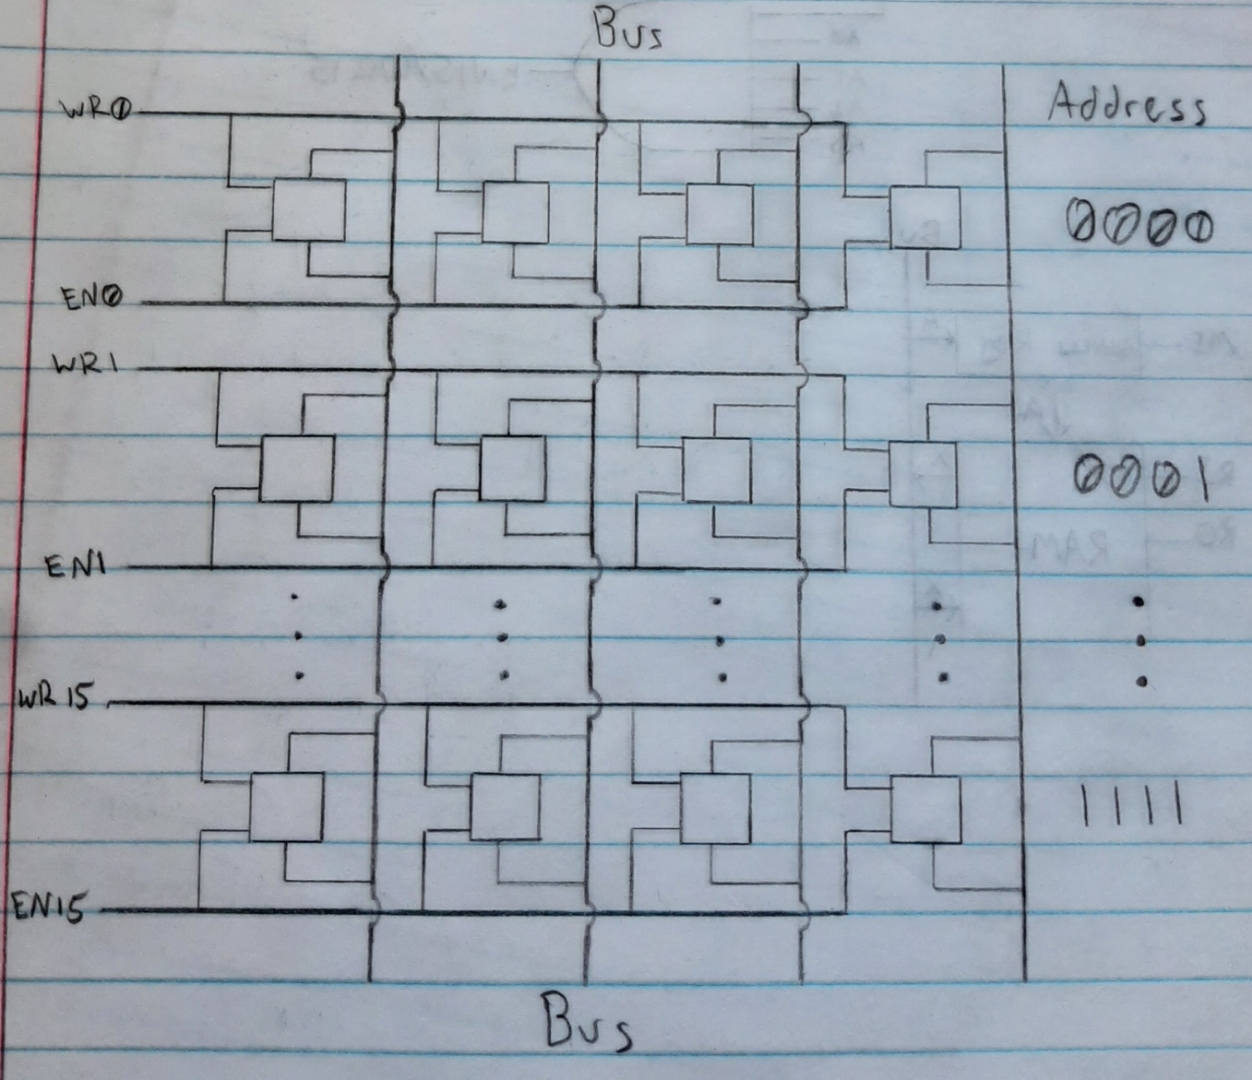 Bus
WR0 Address
0000
EN0
WR1
0001
EN1
WR15
1111
EN15
Bus